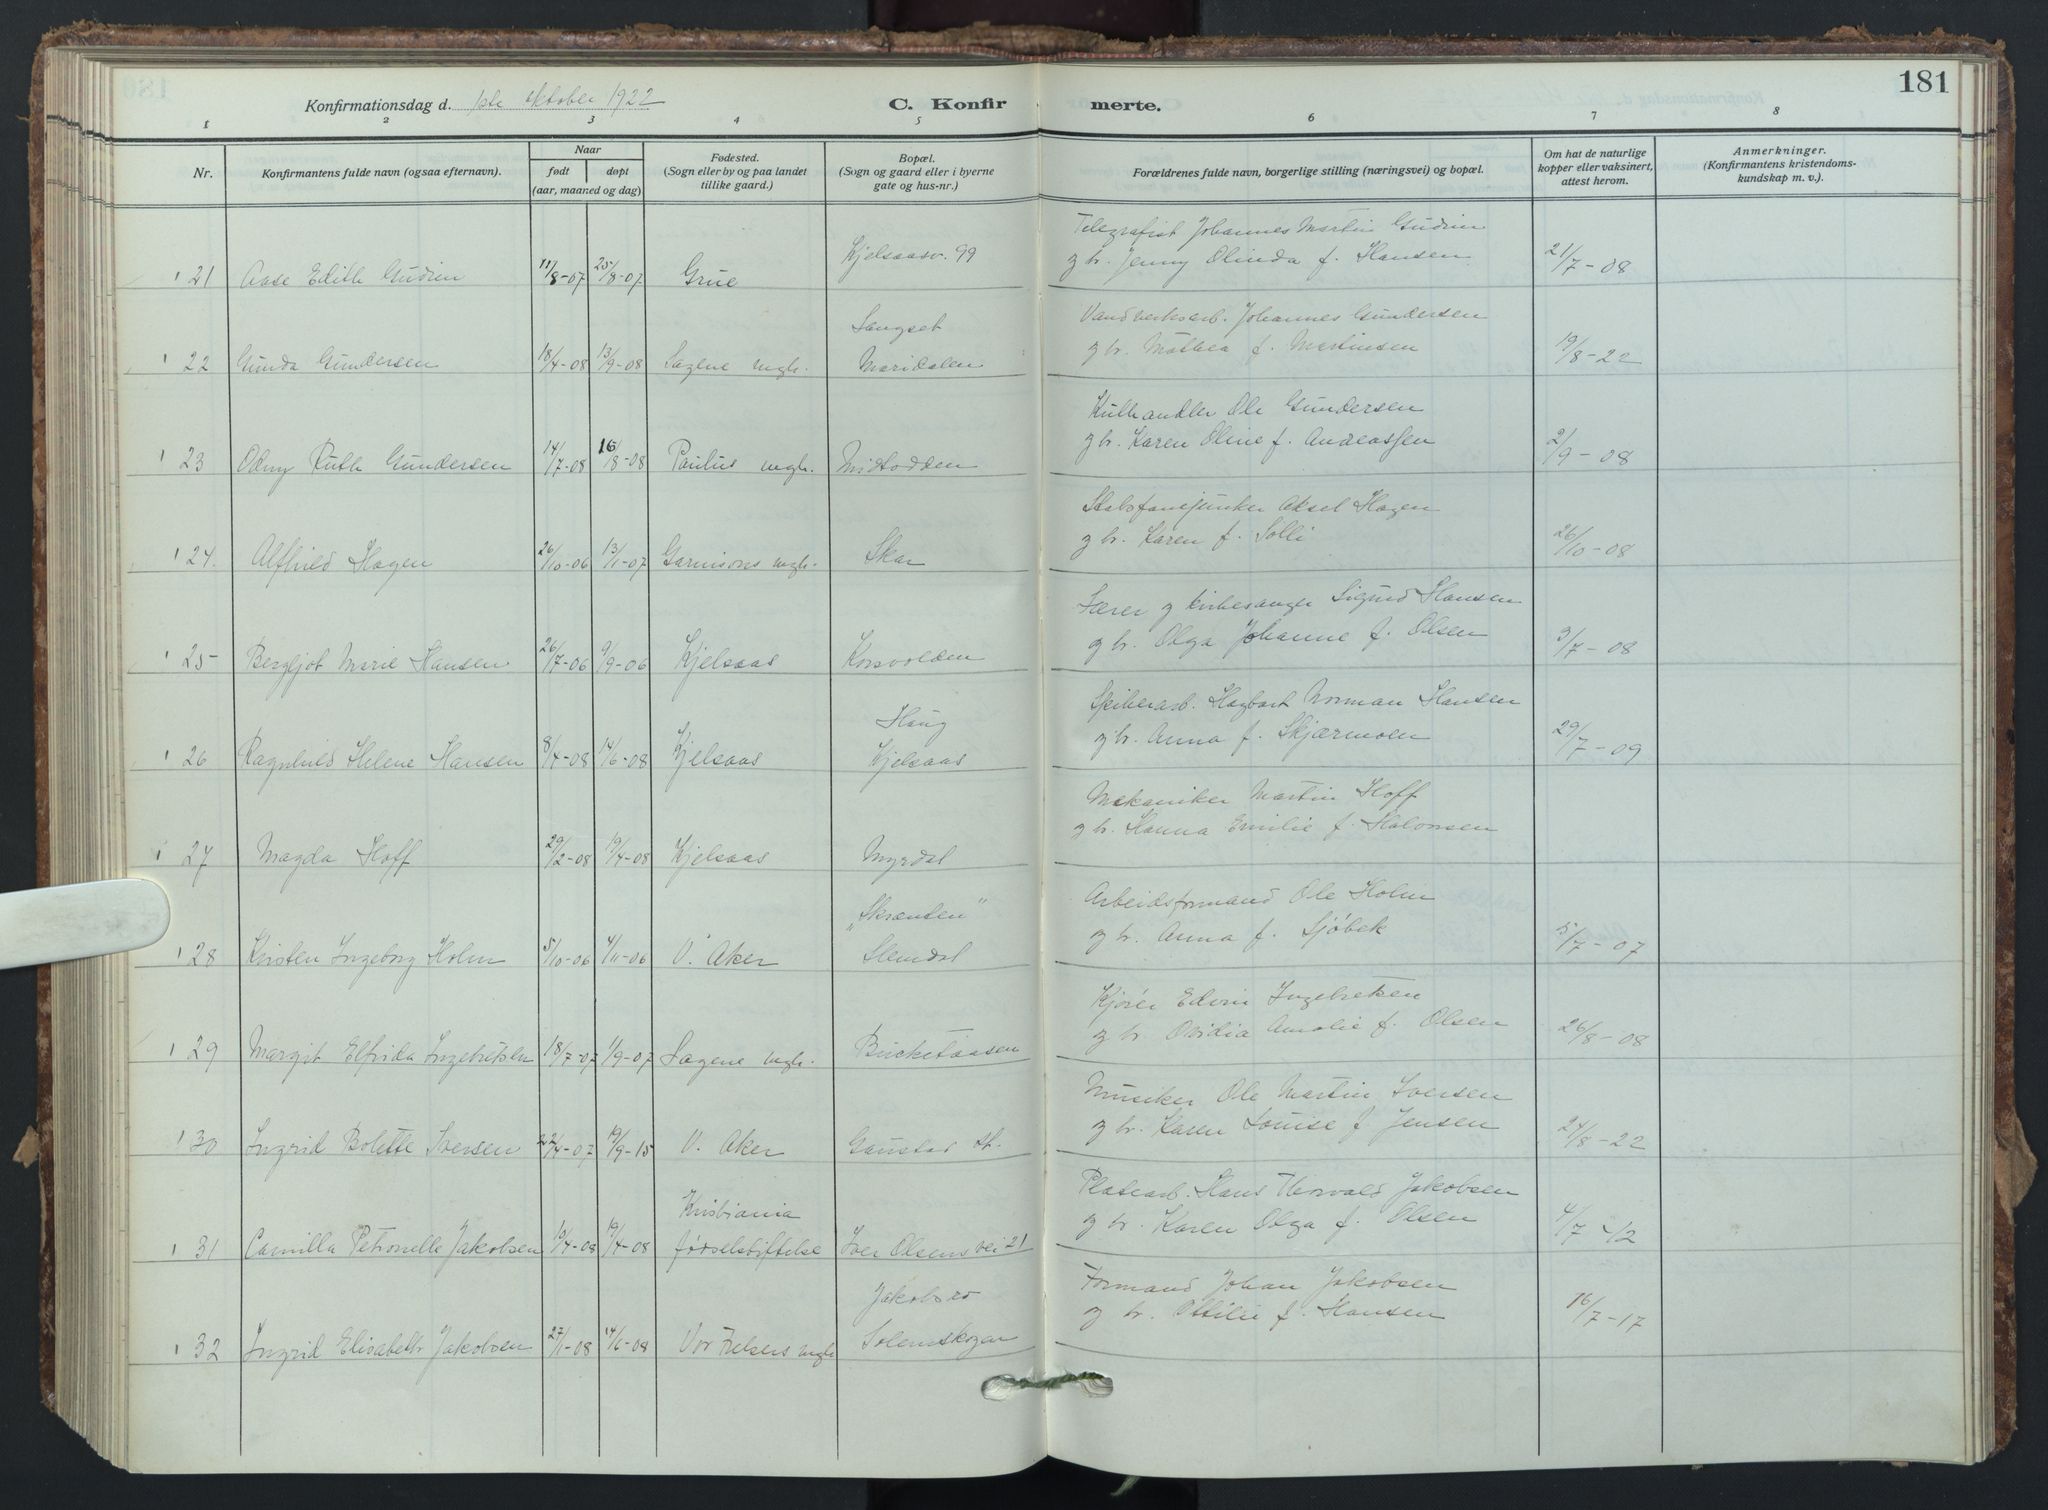 181
Konfirmationsdag d. 1ste oktober 1922
C. Konfirmerte.
1 2 3 4 5 6 7 8
Nr.
Konfirmantens fulde navn (ogsaa efternavn).
Naar
født
døpt
(aar, maaned og dag)
Fødested.
(Sogn eller by og paa landet
tillike gaard.)
Bopæl.
(Sogn og gaard eller i byerne
gate og hus-nr.)
Forældrenes fulde navn, borgerlige stilling (næringsvei) og bopæl.
Om hat de naturlige
kopper eller vaksinert,
attest herom.
Anmerkninger.
(Konfirmantens kristendoms-
kundskap m. v.).
Telegrafist Johannes Martin Gudim
21 Aase Edith Gudim 11/8-07 25/8-07 Grue Kjelsaasv. 99 og hr. Jenny Olinda f. Hansen 21/7-08
Langset Vandverksarb. Johannes Gundersen
22 Gunda Gundersen 18/4-08 13/9-08 Sagene mgh. Maridalen og hr. Mathea f. Martinsen 19/8-22
Kulhandler Ole Gundersen
23 Odny Ruth Gundersen 14/7-08 16/8-08 Paulus mgh. Midtodden og hr. Karen Oline f. Andreassen 2/9-08
Stabsfanejunker Aksel Hagen
24. Alfhild Hagen 26/10-06 13/1-07 Garnisons mgh. Skar og hr. Karen f. Solli 26/10-08
Lærer og kirkesanger Sigurd Hansen
25 Bergljot Marie Hansen 26/7-06 9/9-06 Kjelsaas Korsvolden og hr. Olga Johanne f. Olsen 3/7-08
Haug Spikerarb. Hagbart Norman Hansen
26 Ragnhild Helene Hansen 8/4-08 14/6-08 Kjelsaas Kjelsaas og hr. Anna f. Skjærmoen 29/7-09
Mekaniker Martin Hoff
27 Magda Hoff 29/2-08 19/4-08 Kjelsaas Myrdal og hr. Hanna Emilie f. Halvorsen
„Skrænten" Arbeidsformand Ole Holm
28 Kirsten Ingeborg Holm 5/10-06 4/11-06 V. Aker Slemdal og hr. Anna f. Sjöbek 5/7-07
Kjører Edvin Ingebretsen
29 Margit Elfrida Ingebretsen 18/7-07 1/9-07 Sagene mgh. Bucketaasen og hr. Ovidia Amalie f. Olsen 26/8-08
Musiker Ole Martin Iversen
30 Ingrid Bolette Iversen 22/4-07 19/9-15 V. Aker Gaustad st. og hr. Karen Louise f. Jensen 24/8-22
Kristiania Platearb. Hans Thorvald Jakobsen
31 Camilla Petronelle Jakobsen 10/4-08 19/4-08 fødselsstiftelse Iver Olsens vei 21 og hr. Karen Olga f. Olsen 4/7-12
Jakobsro Formand Johan Jakobsen
32 Ingrid Elisabeth Jakobsen 27/1-08 14/6-08 Vor Frelsers mgh Solemskogen og hr. Ottilie f. Hansen 16/7-17